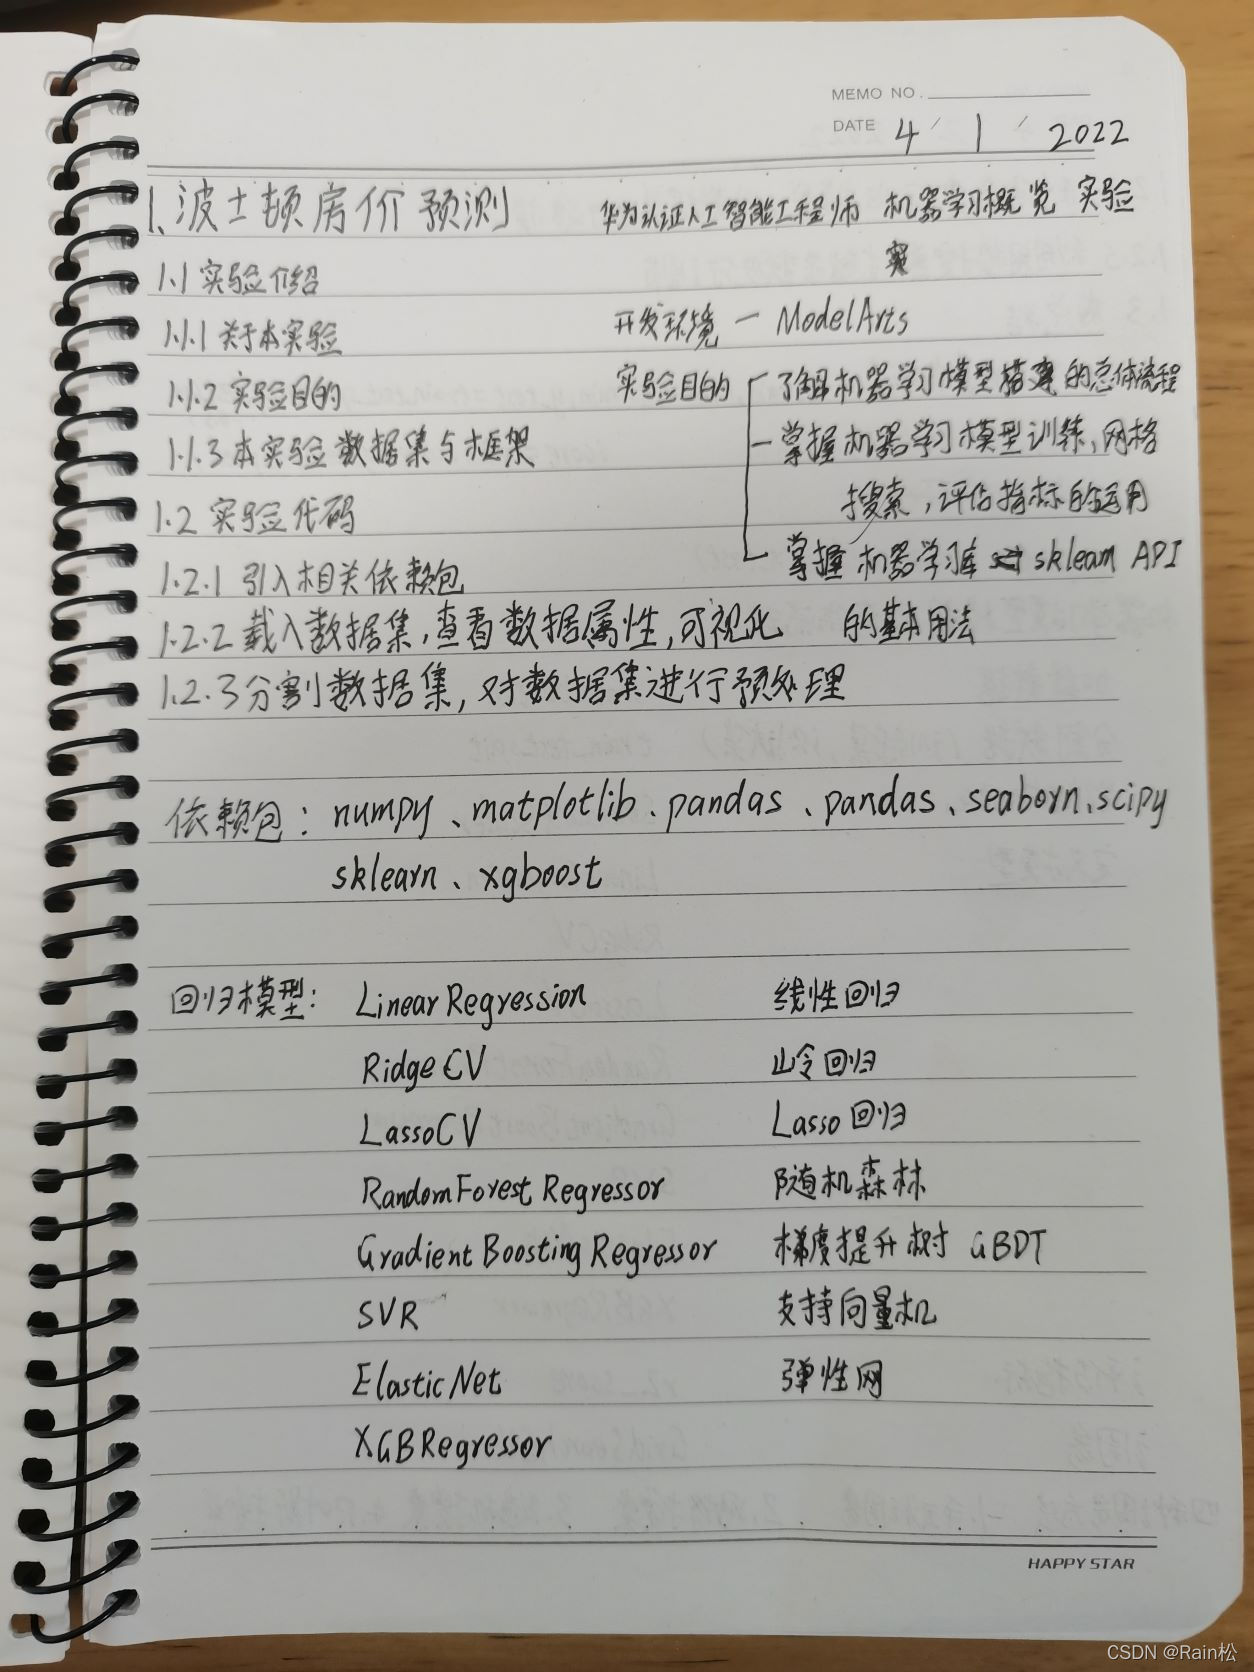 MEMO NO.
DATE 4 / 1 / 2022
1. 波士顿房价预测 华为认证人工智能工程师 机器学习概览 实验
1.1 实验介绍
1.1.1 关于本实验 开发环境 — ModelArts
1.1.2 实验目的 实验目的 了解机器学习模型搭建的总体流程
1.1.3 本实验数据集与框架 — 掌握机器学习模型训练、网格
搜索，评估指标的运用
1.2 实验代码
掌握机器学习库 sklearn API
1.2.1 引入相关依赖包
1.2.2 载入数据集，查看数据属性，可视化 的基本用法
1.2.3 分割数据集，对数据集进行预处理
依赖包：numpy、matplotlib、pandas、pandas、seaborn、scipy
sklearn、xgboost
回归模型： LinearRegression 线性回归
RidgeCV 岭回归
LassoCV Lasso回归
RandomForestRegressor 随机森林
GradientBoostingRegressor 梯度提升树 GBDT
SVR 支持向量机
ElasticNet 弹性网
XGBRegressor
HAPPY STAR
CSDN @Rain松